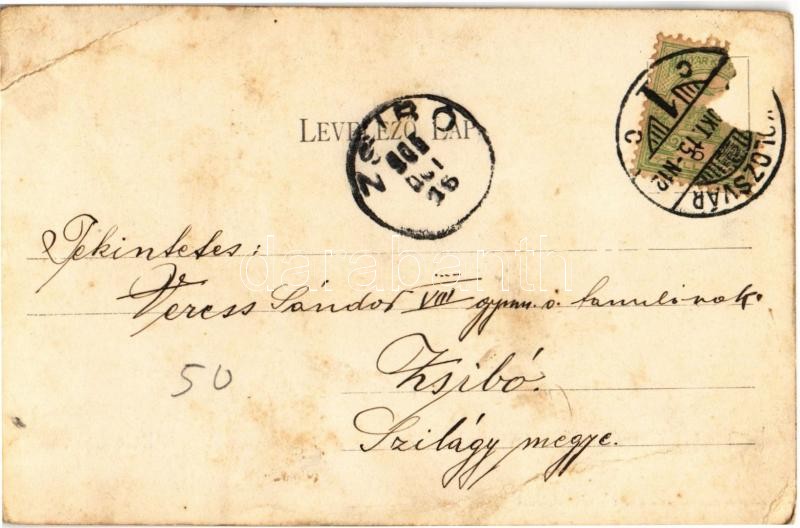 MAGYAR K
LEVELEZŐ LAP
ZSIBÓ
905
OKT
16
KOLOZSVÁR
OKT. 15
Tekintetes:
Veress Sándor VIII gymn. o. tanulónak.
Zsibó.
Szilágy megye.
50
darabanth